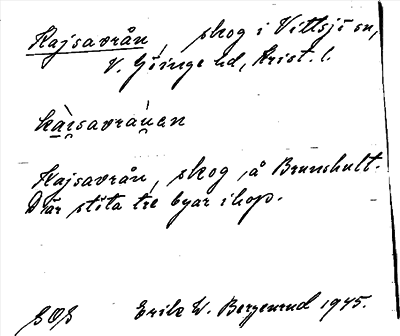 Kajsavrån, skog i Vittsjö sn,
V. Göinge hd, Krist. l.
kài̯savràu̯en
Kajsavrån, skog å Brunshult.
Där stöta tre byar ihop.
SOS Erik W. Bergenrud 1945.